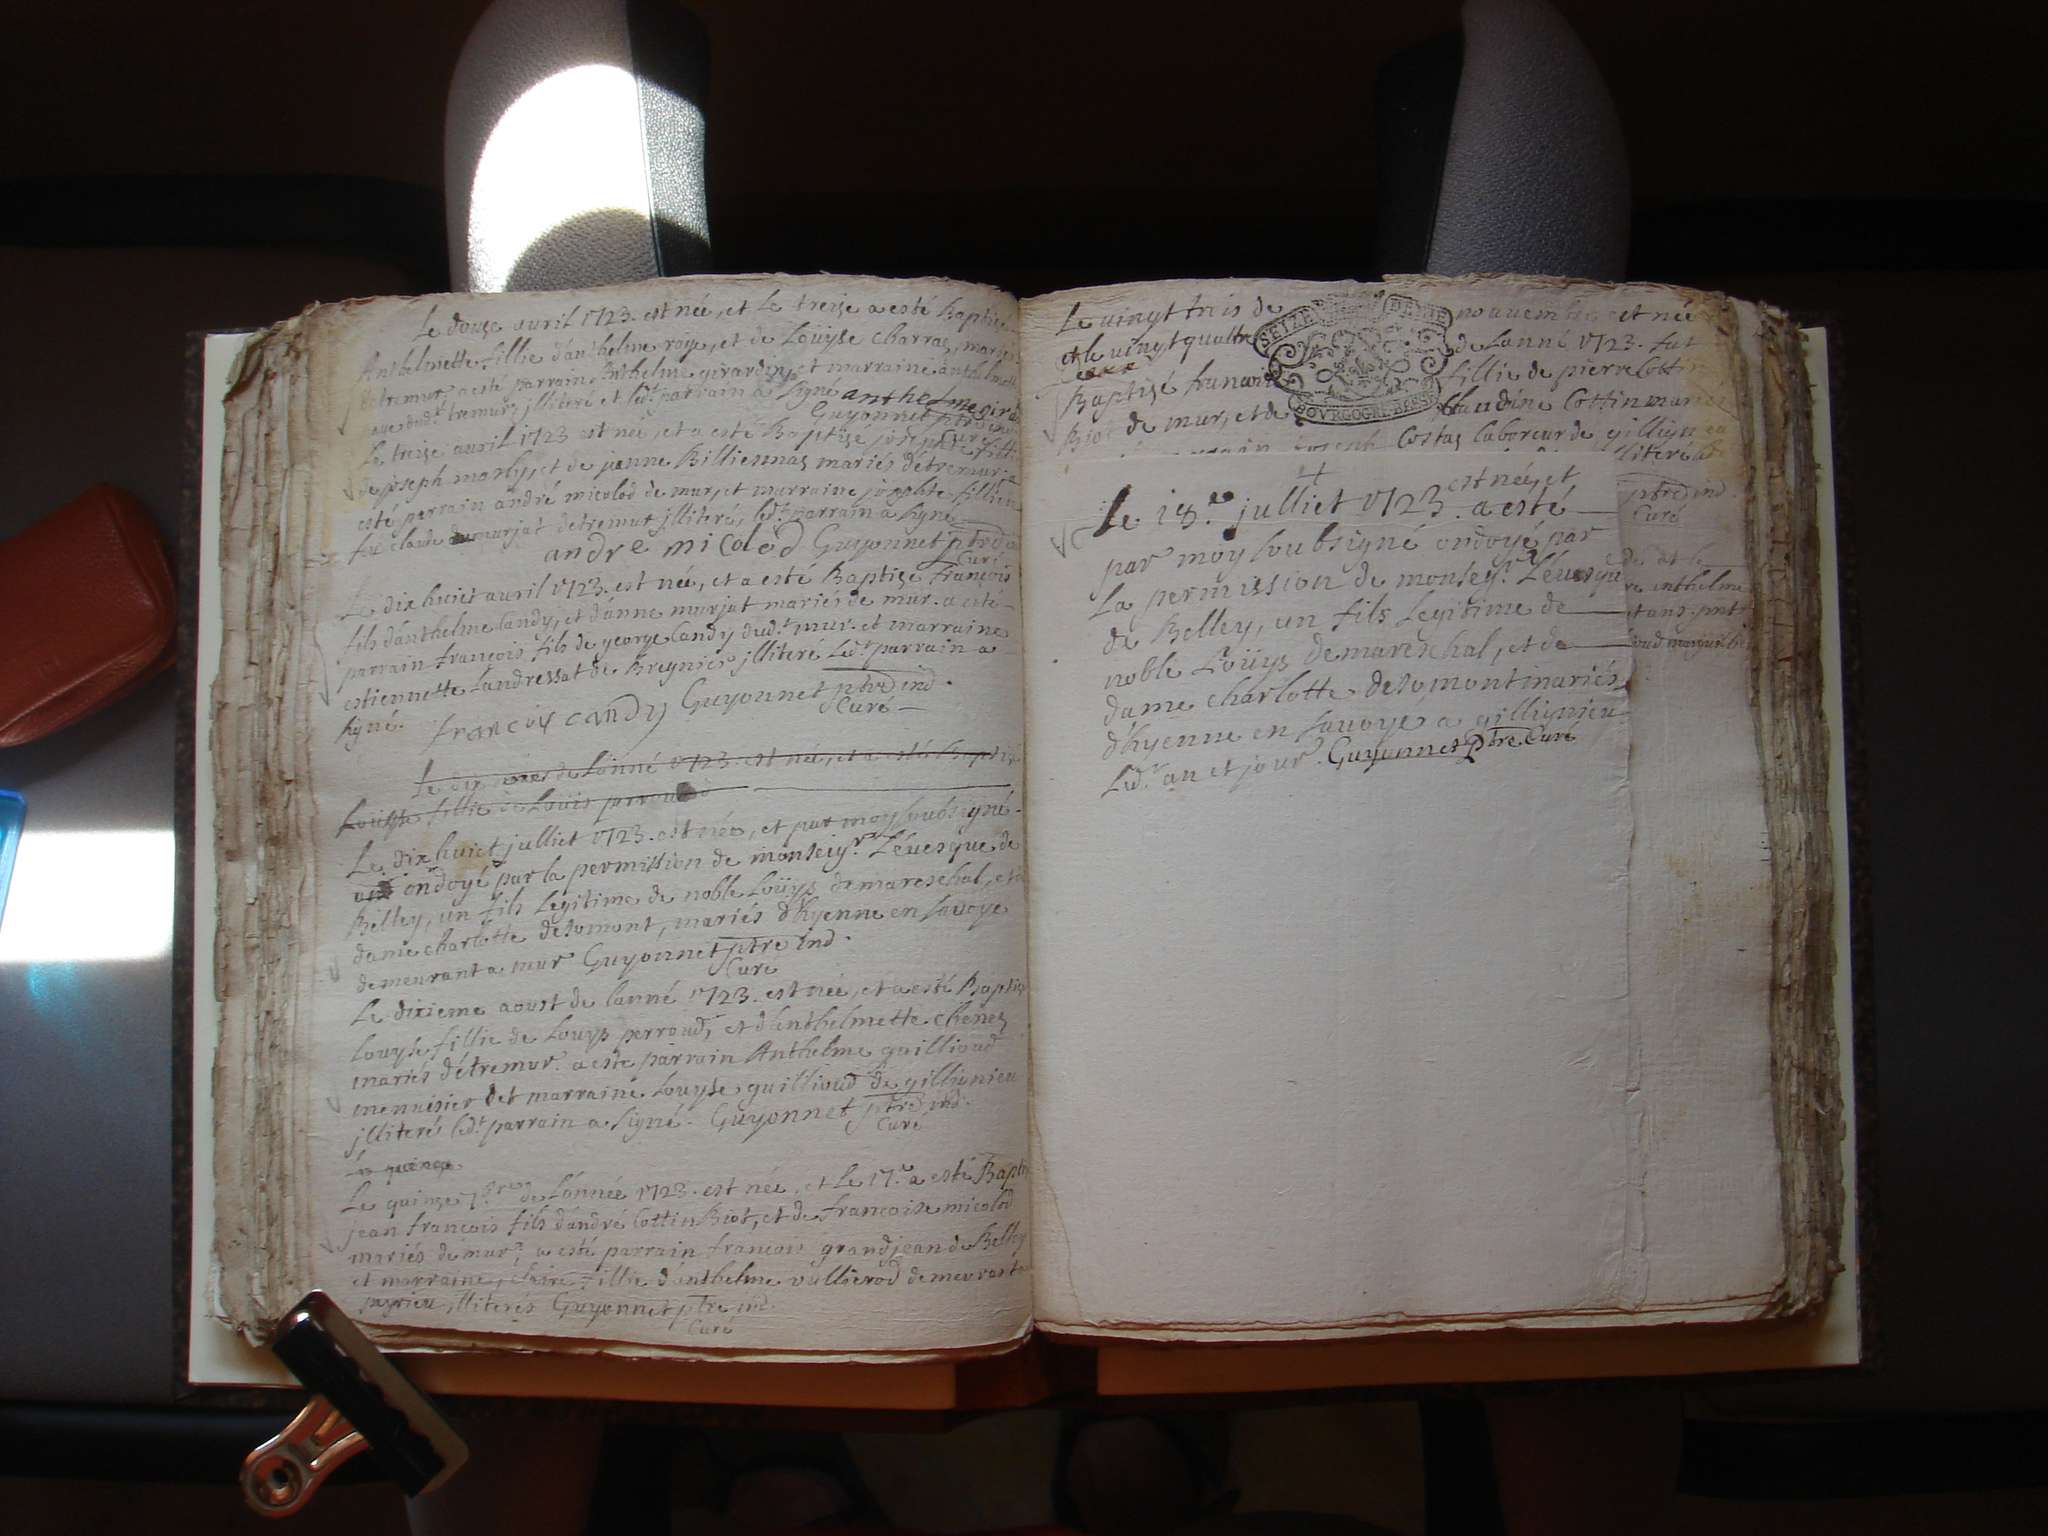 Le douze avril 1723. est née, et Le treize a esté Baptisé
Anthelmette fillie d'anthelme roye, et de Loüyse charraz, mariés
detremur, a esté parrain Anthelme girardin, et marraine anthelmette
dud.t tremur, jlliteré et led.t parrain a signé anthelme girar
Guyonnet ptre ind
Curé
Le treize avril 1723 est née, et a esté Baptise josephte filli
de joseph marly, et de janne Billiennaz mariés détremur. a
esté parrain andré micolod de mur, et marraine josephte fillie
feu claude murjat detremur jlliteré, led.t parrain a signé
andre micolod Guyonnet ptre
Curé
Le dix huict avril 1723. est née, et a esté Baptise françois
fils d'anthelme Candy, et d'anne murjat mariés de mur. a esté
parrain françois fils de george Candy dud.t mur. et marraine
estiennette Landressat de Breynier jlliteré Led.t parrain a
signé. françois candy Guyonnet ptre ind.
Curé
Le dix de Lanné 1723. est née, et a esté Baptise
Louyse fillie de Loüis perroud
Le dix huict julliet 1723. est née, et par moy soubsigné
ondoyé par la permission de monseig.r Lévesque de
Belley, un fils Legitime de noble Loüys demareschal, et de
dame charlotte desomont, mariés d'hyenne en savoye
demeurant a mur Guyonnet ptre ind.
Curé
Le dixieme aoust de lanné 1723. est née, et a esté Baptise
Louyse fillie de Louys perroud, et d'anthelmette chenez
mariés détremur. a esté parrain Anthelme guillioud
menuisier et marraine Louyse guillioud de gillignieu
jlliterés led.t parrain a signé. Guyonnet ptre ind.
Curé
Le quinze
Le quinze 7.bre de Lannée 1723. est née, et Le 17.e a esté Bapti
jean françois fils d'andré Cottin Biot, et de françoise micolod
mariés de mur, a esté parrain françois grandjean de Belley
et marraine, Claire fillie d'anthelme vullierod demeurant a
peyrieu, jlliterés Guyonnet ptre ind.
Curé
Le vingt trois de nouembre est née
et le vingt quattre de Lanné 1723. fut
Baptisé francoise fillie de pierre Cottin
Biot de mur, et de Claudine Cottin mariés
parrain joseph Costaz laboreur de gillign
SEIZE DENIE
BOVRGOGNE BRESSE
ptre ind
Curé
Le 18.e julliet 1723. est née, et a esté
par moy soubsigné ondoyé par
La permission de monseg.r Lévesque
de Belley, un fils Legitime de
noble Loüys demareschal, et de
dame charlotte desomont mariés
d'hyenne en savoye a gillignieu
Led.t an et jour. Guyonnet ptre Curé